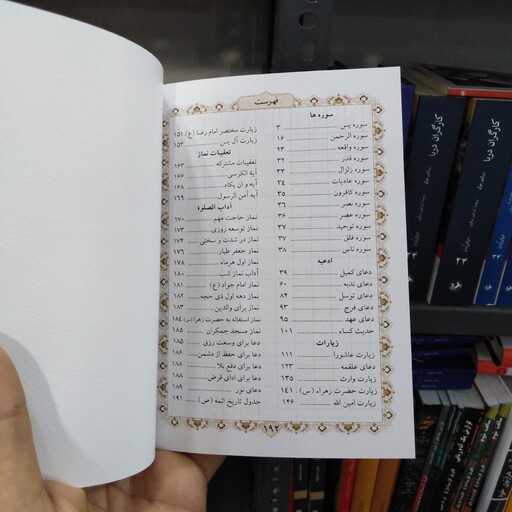 فهرست
سوره ها
سوره یس ۳
سوره الرحمن ۱۶
سوره واقعه ۲۳
سوره قدر ۳۲
سوره زلزال ۳۳
سوره عادیات ۳۴
سوره کافرون ۳۵
سوره نصر ۳۶
سوره عصر ۳۶
سوره توحید ۳۷
سوره فلق ۳۷
سوره ناس ۳۸
ادعیه
دعای کمیل ۳۹
دعای ندبه ۶۰
دعای توسل ۸۴
دعای فرج ۹۳
دعای عهد ۹۵
حدیث کساء ۱۰۱
زیارات
زیارت عاشورا ۱۱۱
دعای علقمه ۱۲۳
زیارت وارث ۱۳۵
زیارت حضرت زهراء (س) ۱۴۱
زیارت امین الله ۱۴۶
زیارت مختصر امام رضا (ع) ۱۵۱
زیارت آل یس ۱۵۳
تعقیبات نماز
تعقیبات مشترکه ۱۶۳
آیة الکرسی ۱۶۶
آیه و ان یکاد ۱۶۸
آیه آمن الرسول ۱۶۹
آداب الصلوة
نماز حاجت مهم ۱۷۰
نماز توسعه روزی ۱۷۳
نماز در شدت و سختی ۱۷۴
نماز جعفر طیار ۱۷۷
نماز اول هرماه ۱۷۸
آداب نماز شب ۱۸۰
نماز امام جواد (ع) ۱۸۱
نماز دهه اول ذی حجه ۱۸۲
نماز برای والدین ۱۸۳
نماز استغاثه به حضرت زهراء (س) ۱۸۴
نماز مسجد جمکران ۱۸۵
دعا برای وسعت رزق ۱۸۵
دعا برای حفظ از دشمن ۱۸۶
دعا برای دفع بلا ۱۸۸
دعا برای ادای قرض ۱۸۸
دعای نور ۱۸۹
جدول تاریخ ائمه (ص) ۱۹۱
۱۹۲
کارگران دریا
کارگران دریا